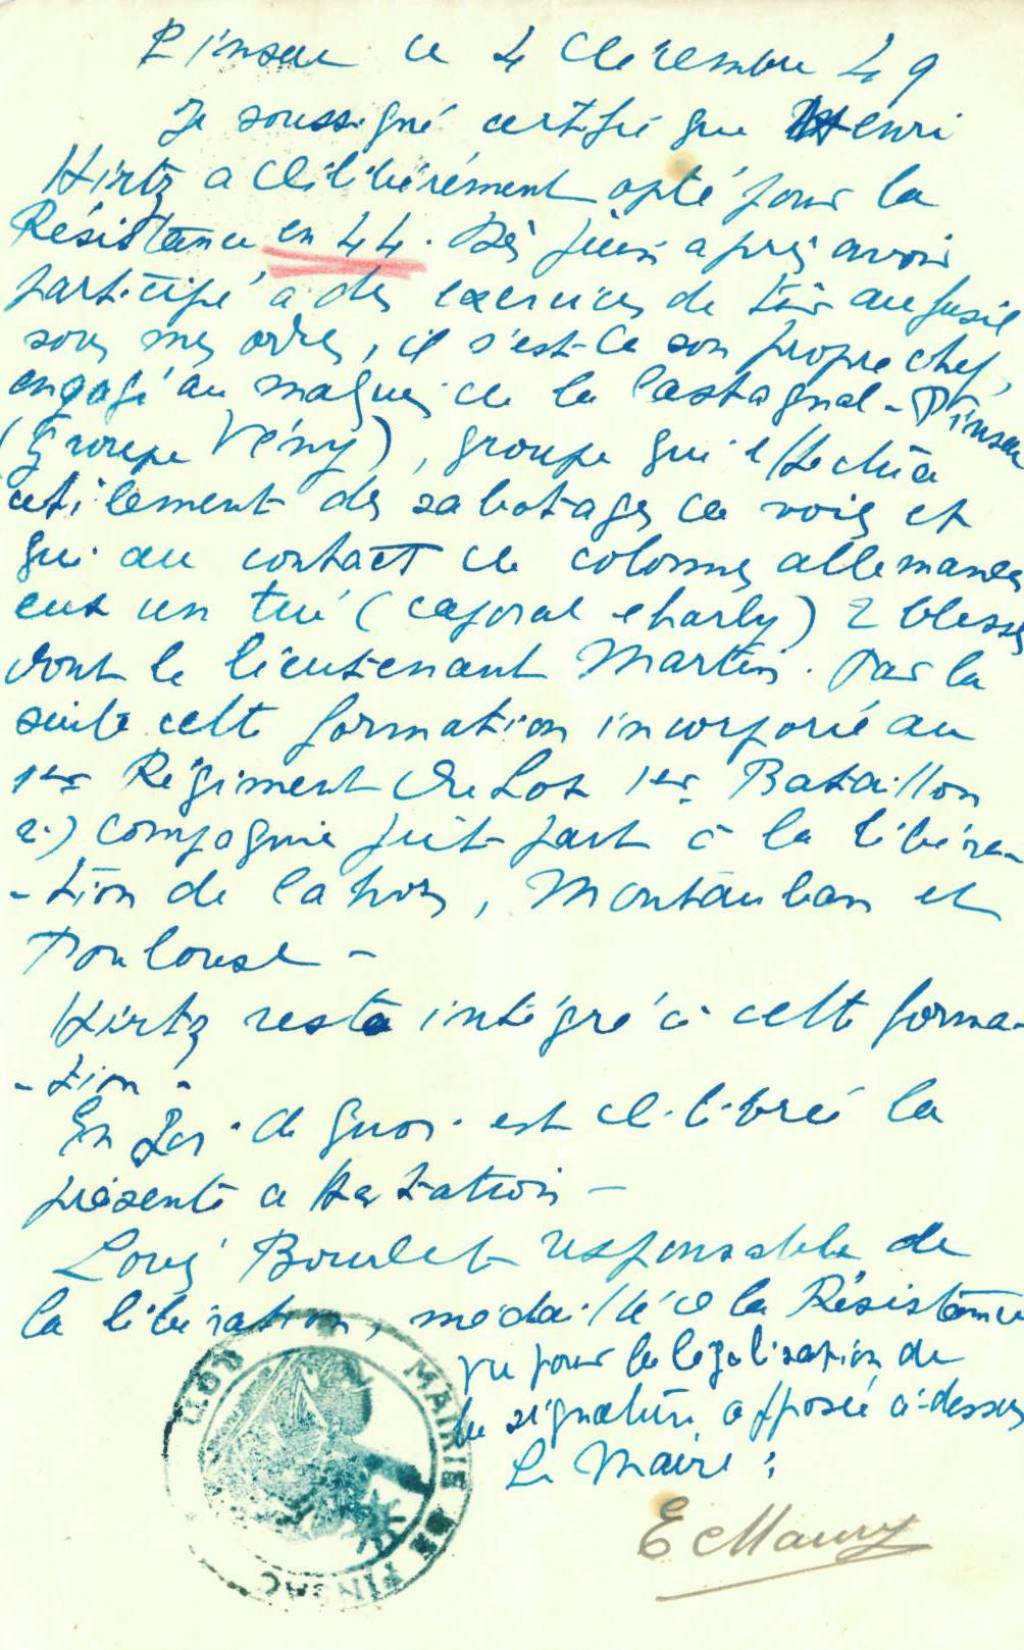 Pinsac le 4 décembre 49
Je soussigné certifie que Henri
Hirtz a délibérément opté pour la
Résistance en 44. Dès juin après avoir
participé à des exercices de tir au fusil
sous mes ordres, il s'est de son propre chef,
engagé au maquis de la Castagnal - Pinsac
(Groupe Vény), groupe qui effectua
utilement des sabotages de voies et
qui au contact de colonnes allemandes
eut un tué (caporal Charly) 2 blessés
dont le lieutenant Martin. Par la
suite cette formation incorporée au
1er Régiment du Lot 1er Bataillon
2e) Compagnie prit part à la libéra-
-tion de Cahors, Montauban et
Toulouse -
Hirtz resta intégré à cette forma-
-tion -
En foi de quoi est délibré la
présente attestation -
Louis Bourlet responsable de
la libération, médaillé de la Résistance
Vu pour la légalisation de
la signature apposée ci-dessus
Le Maire :
E Maury
MAIRIE DE PINSAC
LOT